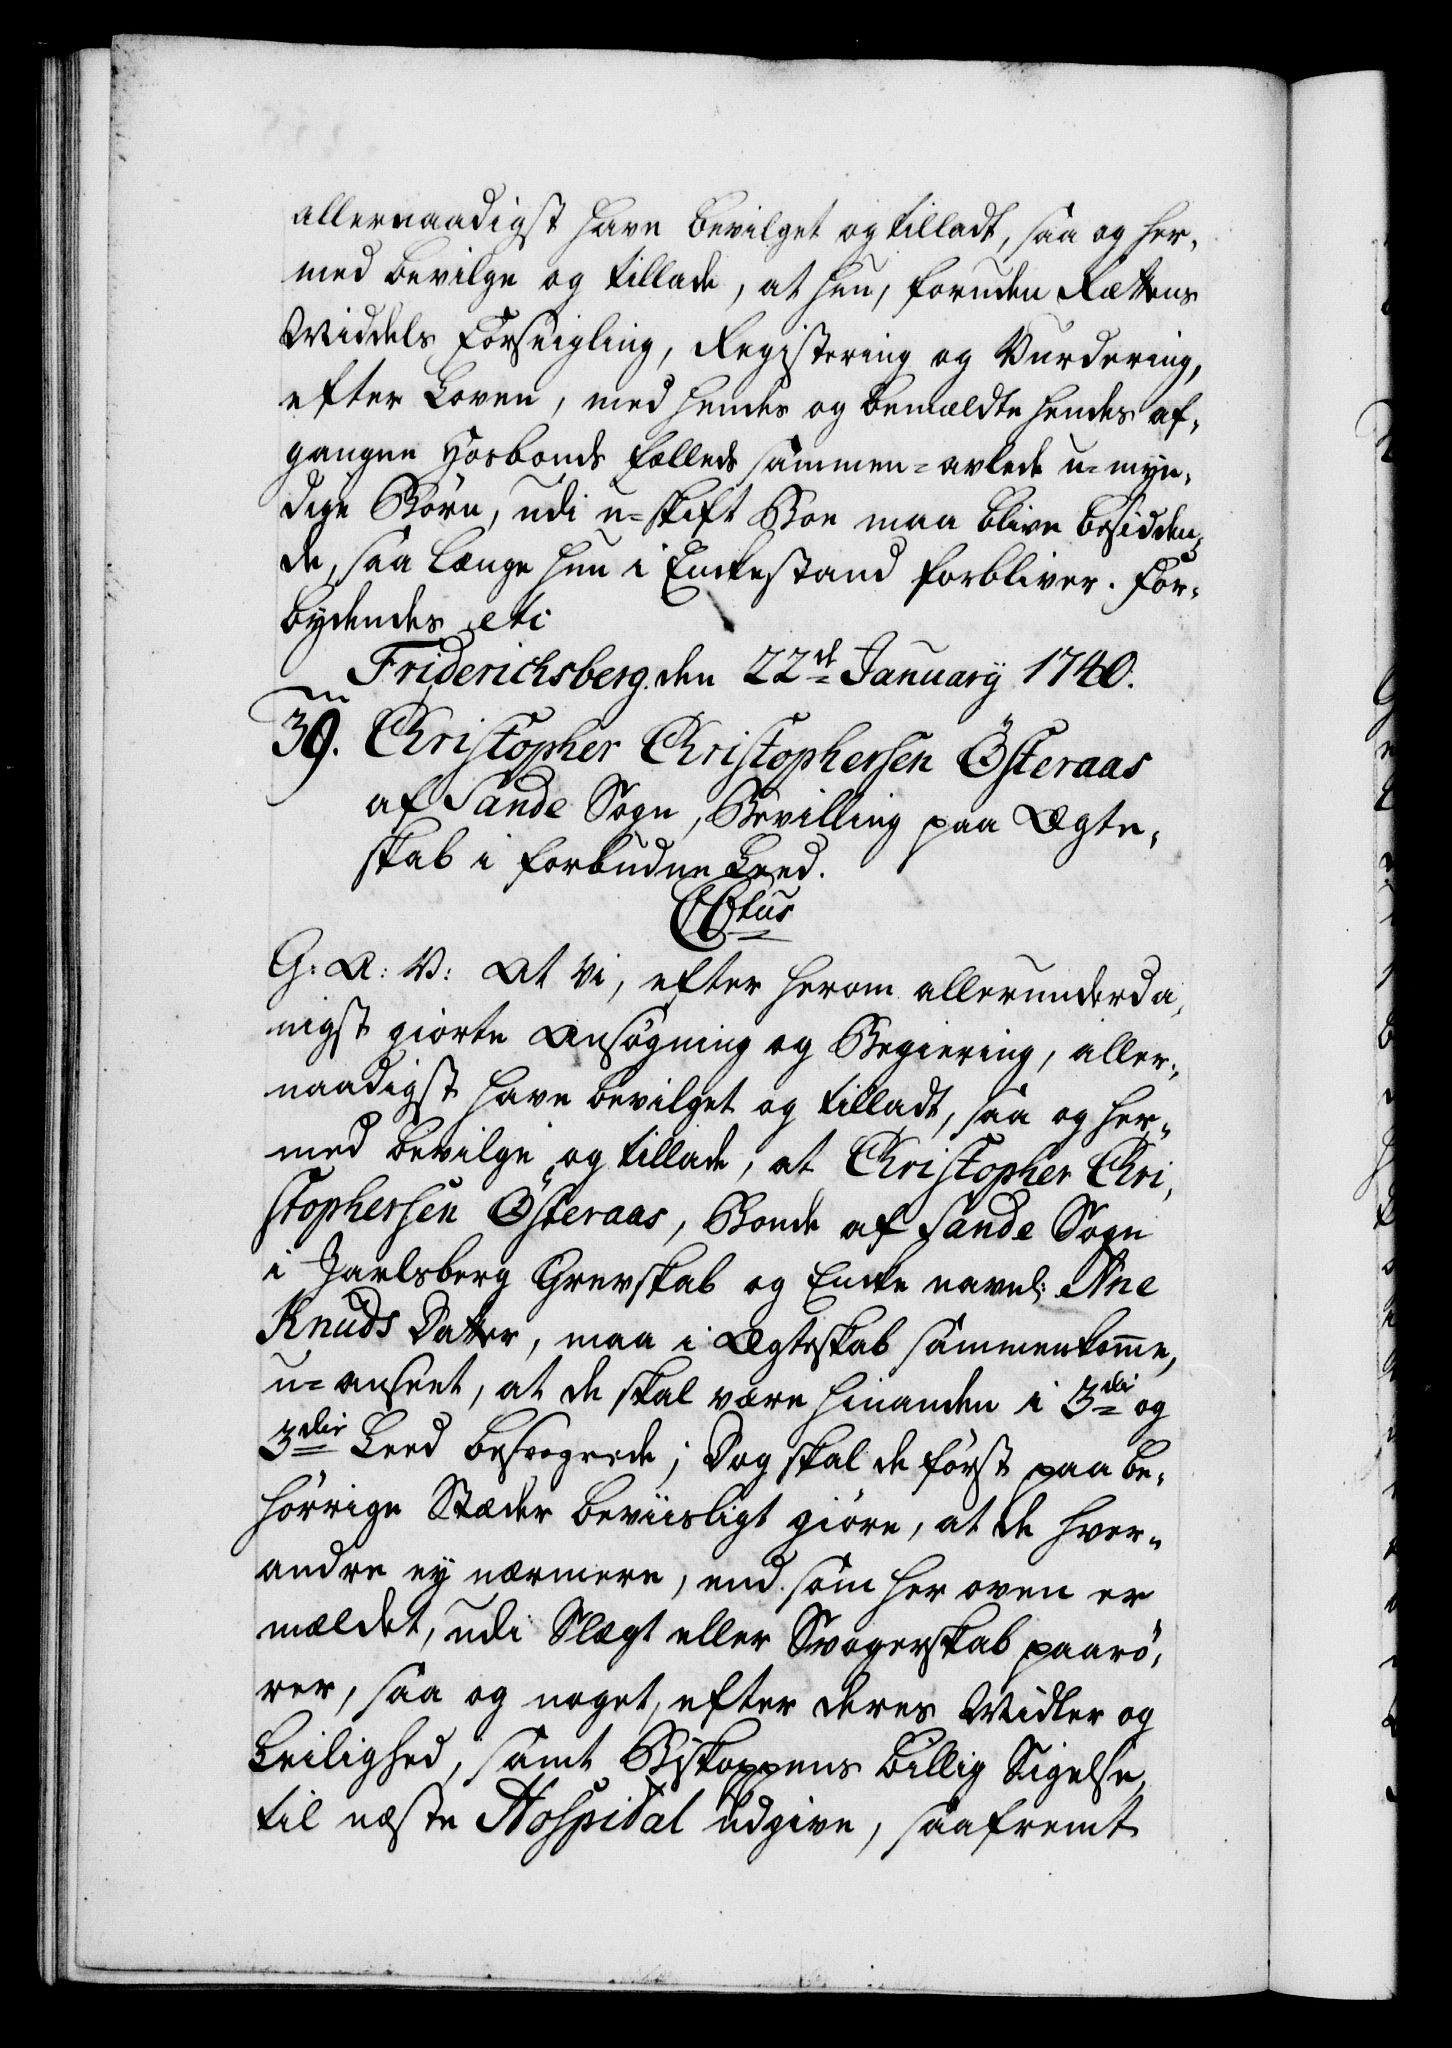 allernaadigst have bevilget og tilladt, saa og her-
med bevilge og tillade, at hun, foruden Rættens
Middels Forseigling, Registering og Vurdering,
efter Loven, med hendes og bemældte hendes af-
gangne Hosbonds fælleds sammen=avlede u=myn-
dige Børn, udi u=skift Boe maa blive besidden-
de, saa længe hun i Enckestand forbliver. For-
bydendes etc
Friderichsberg den 22de January 1740.
39. Christopher Christophersen Österaas
af Sande Sogn, Bevilling paa Ægte-
skab i forbudne Leed.
C6tus
G: A: V: At Vi, efter herom allerunderda-
nigst giorte Ansøgning og Begiering, aller-
naadigst have bevilget og tilladt, saa og her-
med bevilge og tillade, at Christopher Chri-
stophersen Österaas, Bonde af Sande Sogn
i Jarlsberg Grevskab og Encke navnl: Ane
Knuds Datter, maa i Ægteskab sammenkomme,
u=anseet, at de skal være hinanden i 3die og
3die Leed besvogrede; Dog skal de først paa be-
hørrige Stæder beviisligt giøre, at de hver-
andre ey nærmere, end som her oven er
mældet, udi Slægt eller Svogerskab paarø-
rer, saa og noget, efter deres Midler og
Leilighed, samt Biskoppens billig Sigelse,
til næste Hospital udgive, saafremt